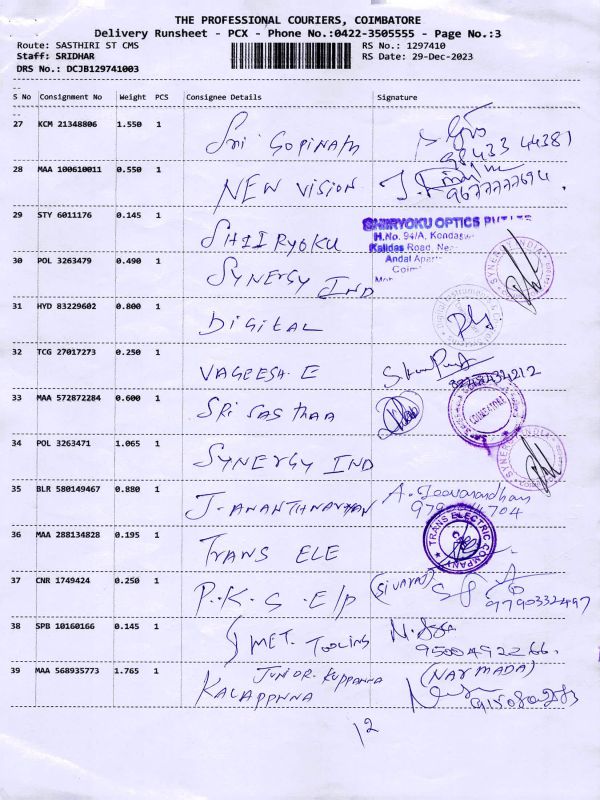 THE PROFESSIONAL COURIERS, COIMBATORE
Delivery Runsheet - PCX - Phone No.:0422-3505555 - Page No.:3
Route: SASTHIRI ST CMS
RS No.: 1297410
Staff: SRIDHAR
RS Date: 29-Dec-2023
DRS No.: DCJB129741003
S No Consignment No Weight PCS Consignee Details Signature
27 KCM 21348806 1.550 1
Sri GOPINATH
98433 44381
28 MAA 100610011 0.550 1
NEW VISION
9677777694
29 STY 6011176 0.145 1
SHIIRYOKU
SHIIRYOKU OPTICS PVT LTD
H.No. 94/A, Kondas
Kalidas Road, Nea
Andal Apar
Coim
Mob
30 POL 3263479 0.490 1
SYNERGY IND
SYNERGY INDIA
31 HYD 83229602 0.800 1
DIGITAL
32 TCG 27017273 0.250 1
VAGEESH. E
33 MAA 572872284 0.600 1
SRI SASTHAA
COIMBATORE
34 POL 3263471 1.065 1
SYNERGY IND
SYNERGY INDIA
35 BLR 580149467 0.880 1
J-ANANTHNARYAN
36 MAA 288134828 0.195 1
TRANS ELE
TRANS ELECTRIC COMPANY
37 CNR 1749424 0.250 1
P.K.S. E/P
(SIVARAJ)
9790332497
38 SPB 10160166 0.145 1
MET. TOOLING
9500492266.
39 MAA 568935773 1.765 1
JUNIOR. KUPPANNA
KALAPPNNA
(NARMADA)
12